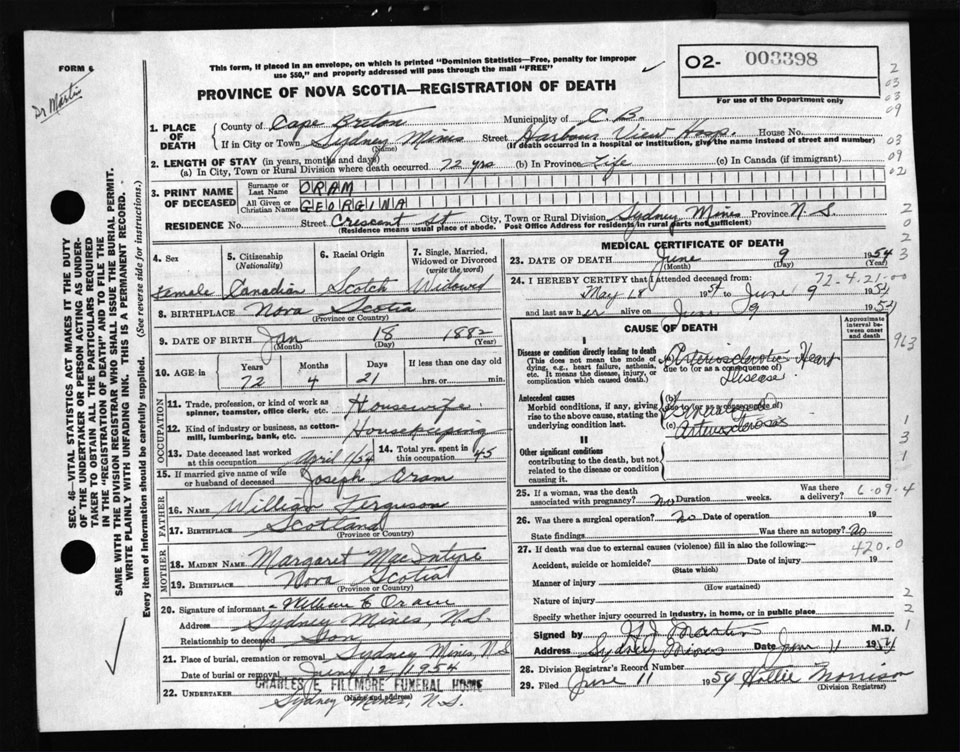 FORM 6
Dr Martin
This form, if placed in an envelope, on which is printed "Dominion Statistics—Free, penalty for improper
use $50," and properly addressed will pass through the mail "FREE"
PROVINCE OF NOVA SCOTIA—REGISTRATION OF DEATH
02- 003398
For use of the Department only
1. PLACE OF DEATH
County of Cape Breton Municipality of C. B.
If in City or Town Sydney Mines Street Harbour View Hosp. House No.
(Name) (If death occurred in a hospital or institution, give the name instead of street and number)
2. LENGTH OF STAY (in years, months and days)
(a) In City, Town or Rural Division where death occurred 72 yrs (b) In Province Life (c) In Canada (if immigrant)
3. PRINT NAME OF DECEASED
Surname or Last Name ORAM
All Given or Christian Names GEORGINA
RESIDENCE No. Street Crescent St City, Town or Rural Division Sydney Mines Province N.S.
(Residence means usual place of abode. Post Office Address for residents in rural parts not sufficient)
4. Sex Female
5. Citizenship (Nationality) Canadian
6. Racial Origin Scotch
7. Single, Married, Widowed or Divorced (write the word) Widowed
8. BIRTHPLACE Nova Scotia
(Province or Country)
9. DATE OF BIRTH Jan 18 1882
(Month) (Day) (Year)
10. AGE in Years Months Days If less than one day old
72 4 21 hrs. or min.
OCCUPATION
11. Trade, profession, or kind of work as spinner, teamster, office clerk, etc. Housewife
12. Kind of industry or business, as cotton-mill, lumbering, bank, etc. Housekeeping
13. Date deceased last worked at this occupation April/54
14. Total yrs. spent in this occupation 45
15. If married give name of wife or husband of deceased Joseph Oram
FATHER
16. Name William Ferguson
17. Birthplace Scotland
(Province or Country)
MOTHER
18. MAIDEN NAME Margaret MacIntyre
19. BIRTHPLACE Nova Scotia
(Province or Country)
20. Signature of informant William E Oram
Address Sydney Mines, N.S.
Relationship to deceased Son
21. Place of burial, cremation or removal Sydney Mines, N.S.
Date of burial or removal June 12 1954
22. UNDERTAKER CHARLES E. FILLMORE FUNERAL HOME
(Name and address)
Sydney Mines, N.S.
MEDICAL CERTIFICATE OF DEATH
23. DATE OF DEATH June 9 1954
(Month) (Day) (Year)
72-4-21-00
24. I HEREBY CERTIFY that I attended deceased from:
May 18 1954 to June 9 1954
and last saw her alive on June 9 1954
CAUSE OF DEATH
Approximate interval between onset and death
I
Disease or condition directly leading to death (a) Arteriosclerotic Heart Disease
(This does not mean the mode of dying, e.g., heart failure, asthenia, etc. It means the disease, injury, or complication which caused death.)
due to (or as a consequence of)
Antecedent causes
Morbid conditions, if any, giving rise to the above cause, stating the underlying condition last.
(b) Generalized
due to (or as a consequence of)
(c) Arteriosclerosis
II
Other significant conditions
contributing to the death, but not related to the disease or condition causing it.
25. If a woman, was the death associated with pregnancy? No Duration weeks. Was there a delivery?
6-09-4
26. Was there a surgical operation? No Date of operation 19
State findings Was there an autopsy? No
27. If death was due to external causes (violence) fill in also the following:—
420.0
Accident, suicide or homicide? Date of injury 19
(State which)
Manner of injury
(How sustained)
Nature of injury
Specify whether injury occurred in industry, in home, or in public place
Signed by H J Martin M.D.
Address Sydney Mines Date June 11 1954
28. Division Registrar's Record Number
29. Filed June 11 1954 Hollie Morrison
(Division Registrar)
SEC. 46—VITAL STATISTICS ACT MAKES IT THE DUTY
OF THE UNDERTAKER OR PERSON ACTING AS UNDER-
TAKER TO OBTAIN ALL THE PARTICULARS REQUIRED
IN THE "REGISTRATION OF DEATH" AND TO FILE THE
SAME WITH THE DIVISION REGISTRAR WHO SHALL ISSUE THE BURIAL PERMIT.
WRITE PLAINLY WITH UNFADING INK. THIS IS A PERMANENT RECORD.
Every item of information should be carefully supplied. (See reverse side for instructions.)
2
03
03
09
03
09
02
2
0
2
3
963
1
3
1
2
2
1